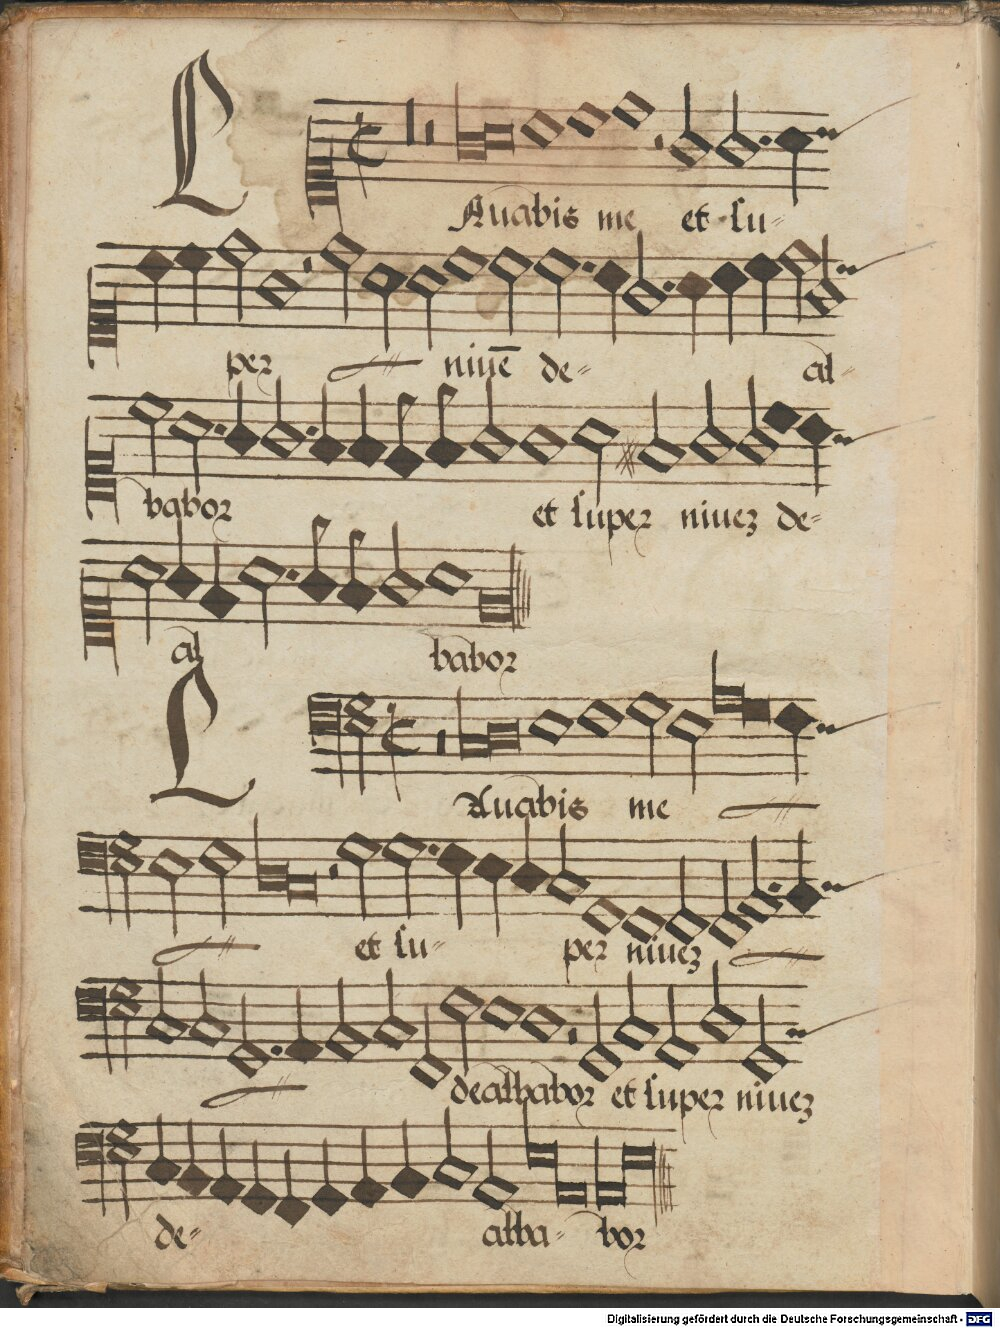 L
Auabis me et su-
per niuē de- al-
babor et super niuez de-
al babor
L
Auabis me
et su- per niuez
dealbabor et super niuez
de- alba- bor
Digitalisierung gefördert durch die Deutsche Forschungsgemeinschaft - DFG